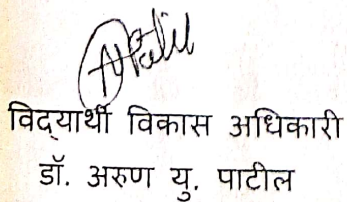 विद्यार्थी विकास अधिकारी
डॉ. अरुण यु. पाटील